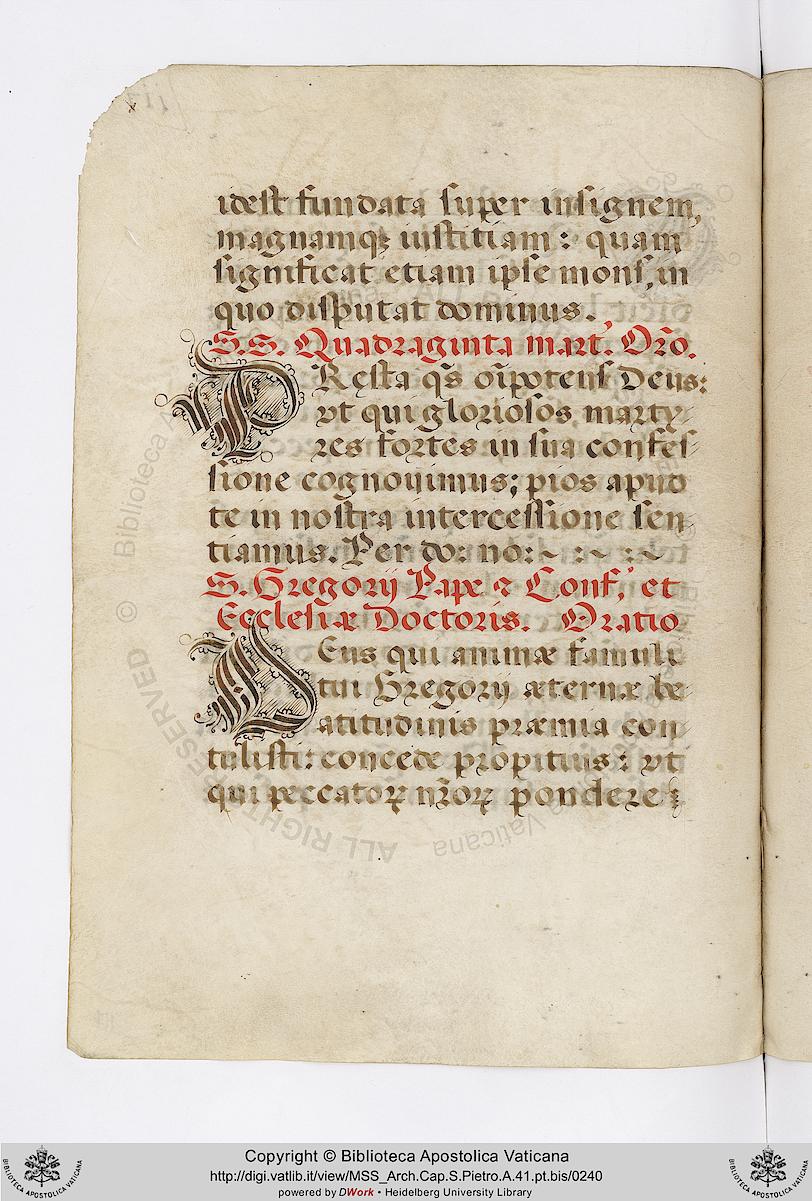 idest fundata super insignem,
magnamq; iustitiam: quam
significat etiam ipse mons, in
quo disputat dominus.
S.S. Quadraginta mart. Orõ.
PResta qs oĩpotens Deus:
vt qui gloriosos marty-
res fortes in sua confes-
sione cognouimus; pios apud
te in nostra intercessione sen-
tiamus. Per do: no:
S. Gregorij Pape & Conf, et
Ecclesiæ Doctoris. Oratio
DEus qui animæ famuli
tui Gregorij æternæ be-
atitudinis præmia con-
tulisti: concede propitius: vt
qui peccatorꝝ nr̃orꝝ pondere
© Biblioteca Apostolica Vaticana
ALL RIGHTS RESERVED
BIBLIOTECA APOSTOLICA VATICANA
Copyright © Biblioteca Apostolica Vaticana
http://digi.vatlib.it/view/MSS_Arch.Cap.S.Pietro.A.41.pt.bis/0240
powered by DWork • Heidelberg University Library
BIBLIOTECA APOSTOLICA VATICANA